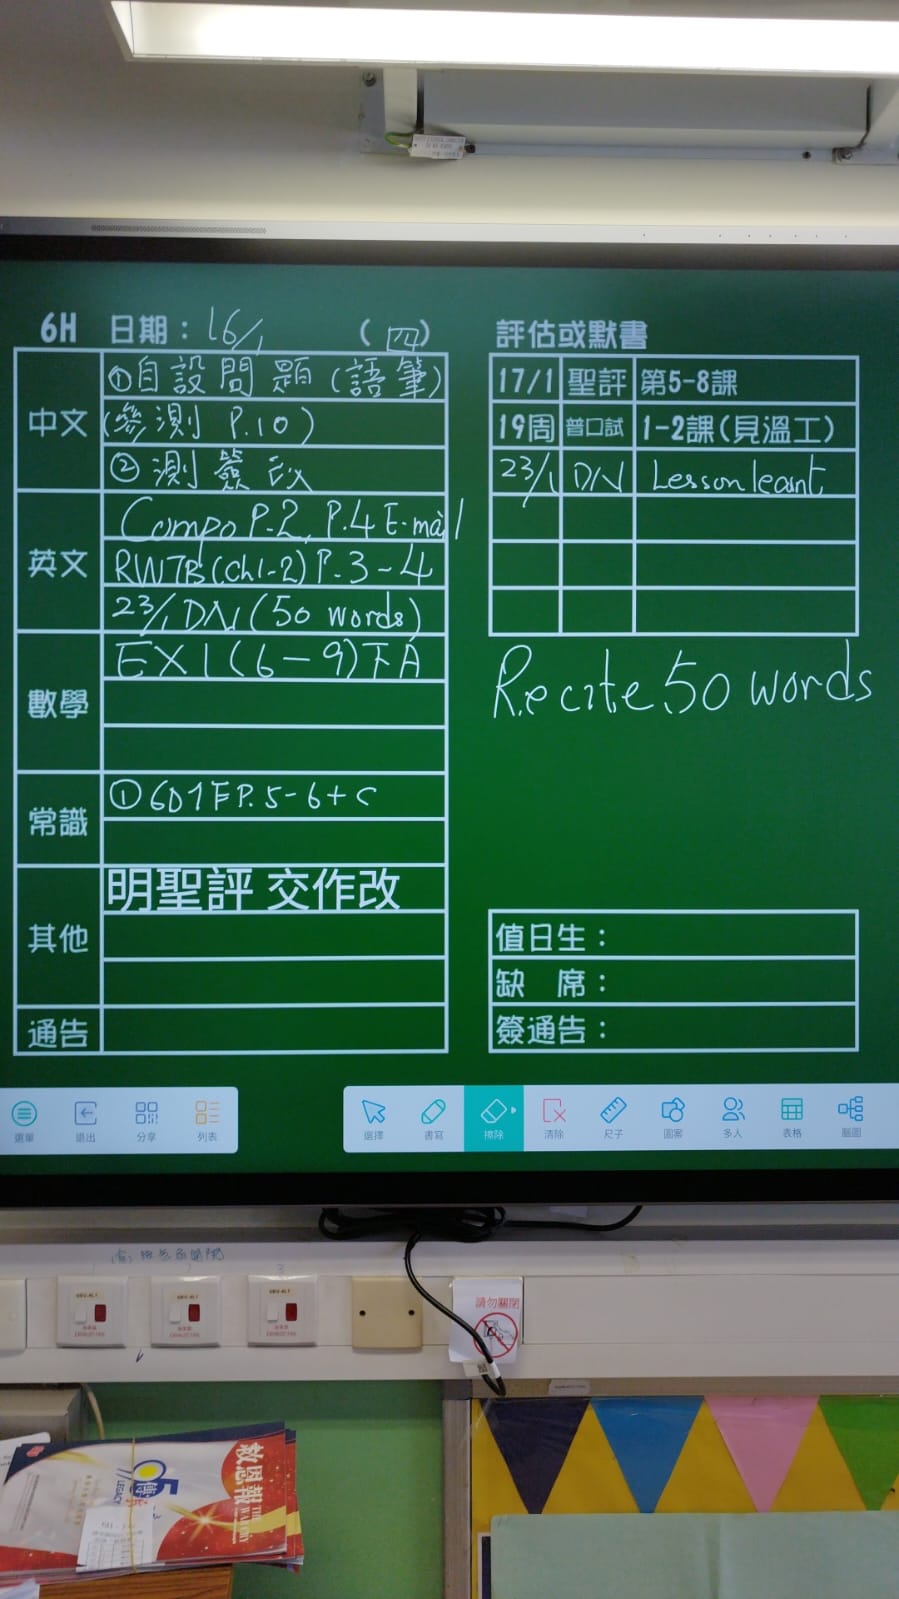 6H 日期：16/1 (四)
中文
①自設問題(語筆)
(參測 P.10)
②測簽改
英文
Compo P.2, P.4 E-mail
RWTB(Ch1-2) P.3-4
23/1 DN(50 words)
數學
EX1(6-9)下A
常識
①6D1F P.5-6+C
其他
明聖評 交作改
通告
評估或默書
17/1 聖評 第5-8課
19周 普口試 1-2課(見溫工)
23/1 DN Lesson leant
Recite 50 words
值日生：
缺 席：
簽通告：
選單 退出 分享 列表
選擇 書寫 擦除 清除 尺子 圖案 多人 表格 腦圖
請勿關閉
救恩報
THE WAR CRY
LEGACY